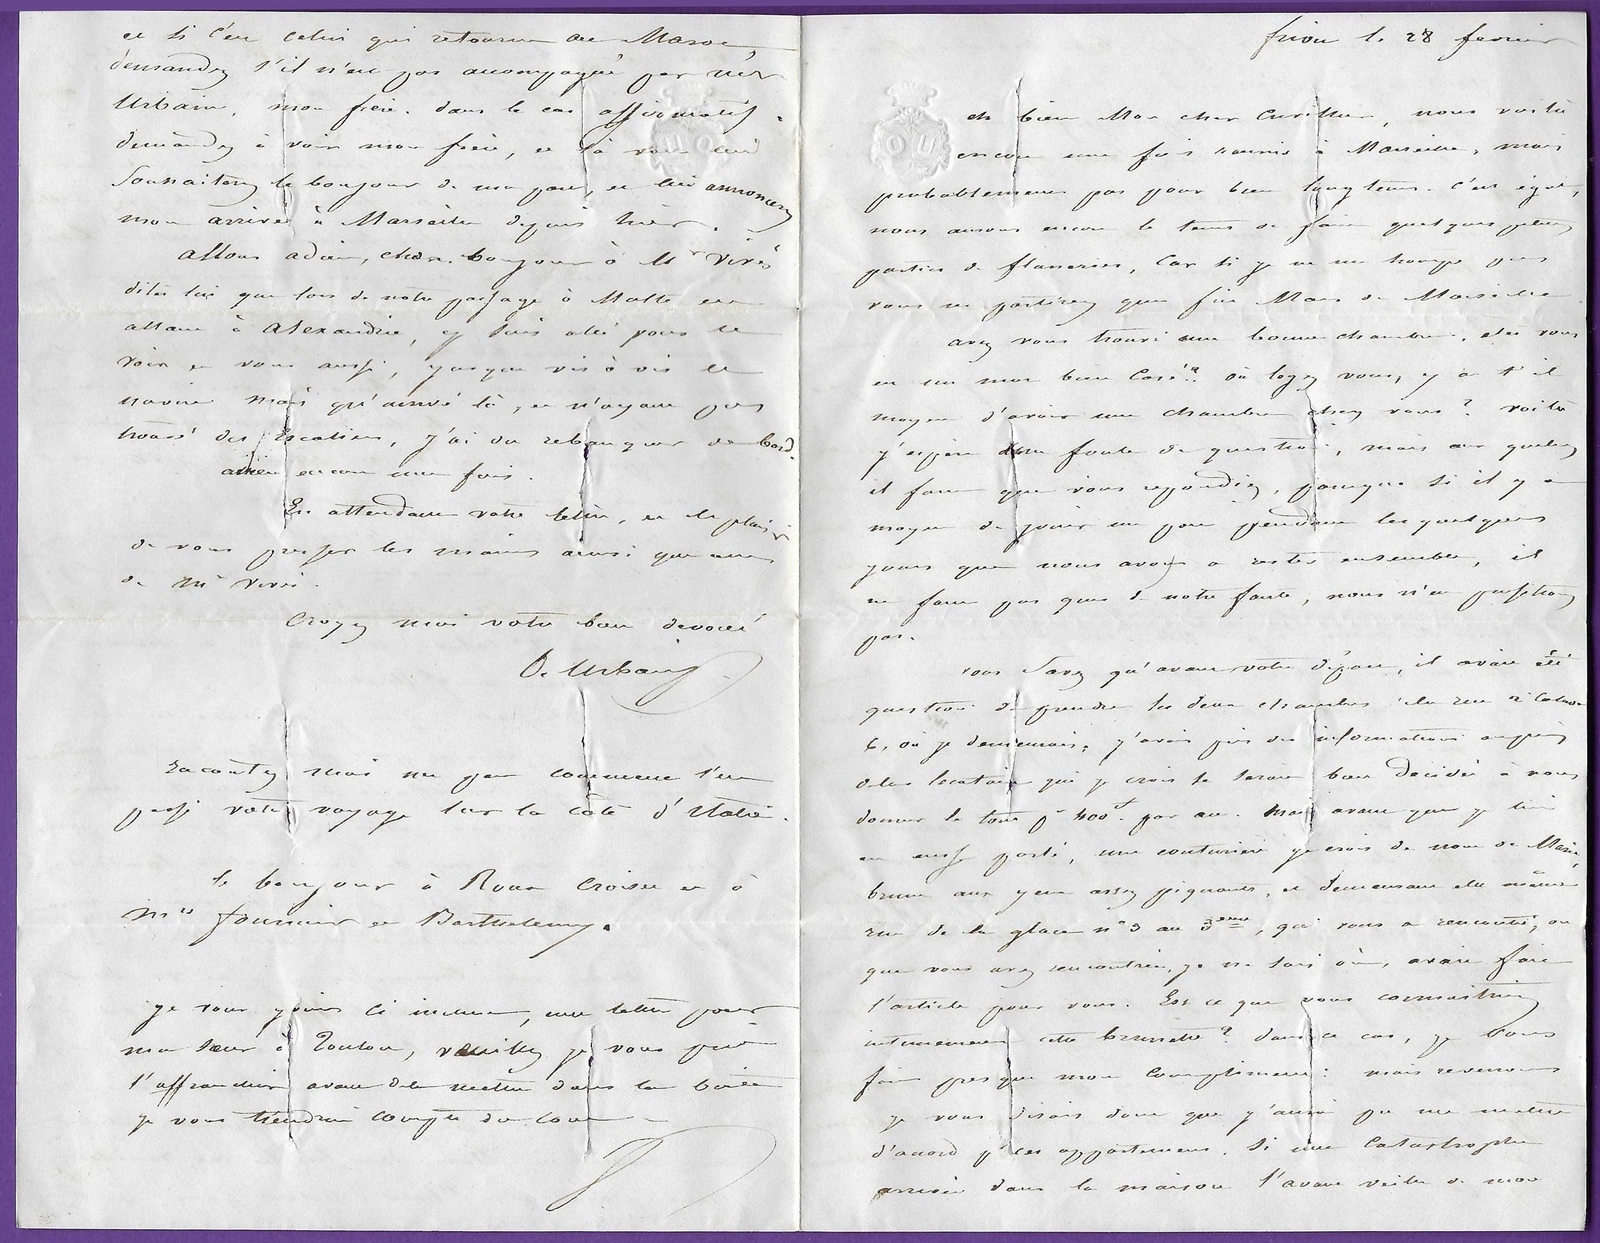 frioul le 28 fevrier
O U
eh bien Mon cher Cuvillier, nous voilà
encore une fois reunis à Marseille, mais
probablement pas pour bien longtems. C'est égal,
nous aurons encore le tems de faire quelques petites
parties de flaneries, Car si je ne me trompe pas
vous ne partirez que fin Mars de Marseille.
avez vous trouvé une bonne chambre, etes vous
en un mot bien Casé? où logez vous, y a t'il
moyen d'avoir une chambre chez vous? voilà
j'espère une foule de questions, mais aux quelles
il faut que vous repondiez, parceque si il y a
moyen de jouir un peu pendant les quelques
jours que nous avons a rester ensemble, il
ne faut pas que de notre faute, nous n'en profitions
pas.
vous Savez qu'avant votre départ, il avait été
question de prendre les deux chambres de la rue
6, où je demeurais, j'avais pris des informations auprès
de la locataire qui je crois se serait bien decidée à vous
donner le tout pr 400f. par an. Mais avant que je lui
en eusse parlé, une couturière je crois du nom de Marie,
brune aux yeux assez piquants, et demeurant elle même
rue de la glace n° 3 au 3eme, qui vous a rencontré, ou
que vous avez rencontrée, je ne sais où, avait fait
l'article pour vous. Est ce que vous connaitriez
intimement cette brunette? dans ce cas, je vous
fais presque mon Compliment: mais revenons
je vous disais donc que j'aurai pu me mettre
d'accord pr ces appartemens. Si une Catastrophe
arrivée dans la maison l'avant veille de mon
et si c'est celui qui retourne de Maroc,
demandez s'il n'est pas accompagné par Mr
Urbain, mon frère. dans le cas affirmatif,
demandez à voir mon frère, et là vous lui
Souhaiterez le bonjour de ma part, et lui annoncerez
mon arrivée à Marseille depuis hier.
allons adieu, cher. bonjour à Mr Vivès
dites lui que lors de notre passage à Malte en
allant à Alexandrie, j'y suis allé pour le
voir et vous aussi, jusque vis à vis le
navire mais qu'arrivé là, et n'ayant pas
trouvé des escaliers, j'ai du rebrousser de bord.
adieu encore une fois.
En attendant votre lettre, et le plaisir
de vous presser les mains ainsi que celles
de Mr Vivès.
Croyez moi votre bien devoué
O. Urbain
racontez moi un peu comment s'est
passé votre voyage sur la côte d'Italie.
le bonjour à Roux Croiset et à
Mrs fournier et Barthelemy.
je vous joins Ci inclus, une lettre pour
ma sœur à Toulon, veuillez je vous prie
l'affranchir avant de la mettre dans la boite
je vous tiendrai compte du cout